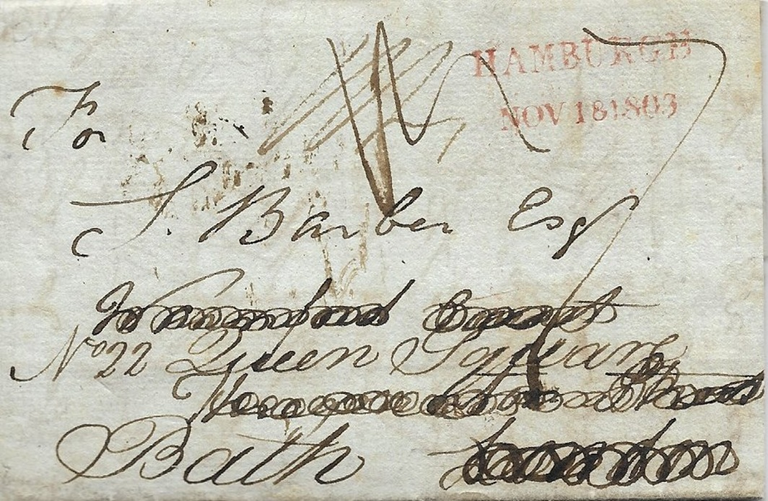 HAMBURGH
NOV 18 1803
For
S. Barber Esqr
No 22 Queen Square
Bath London